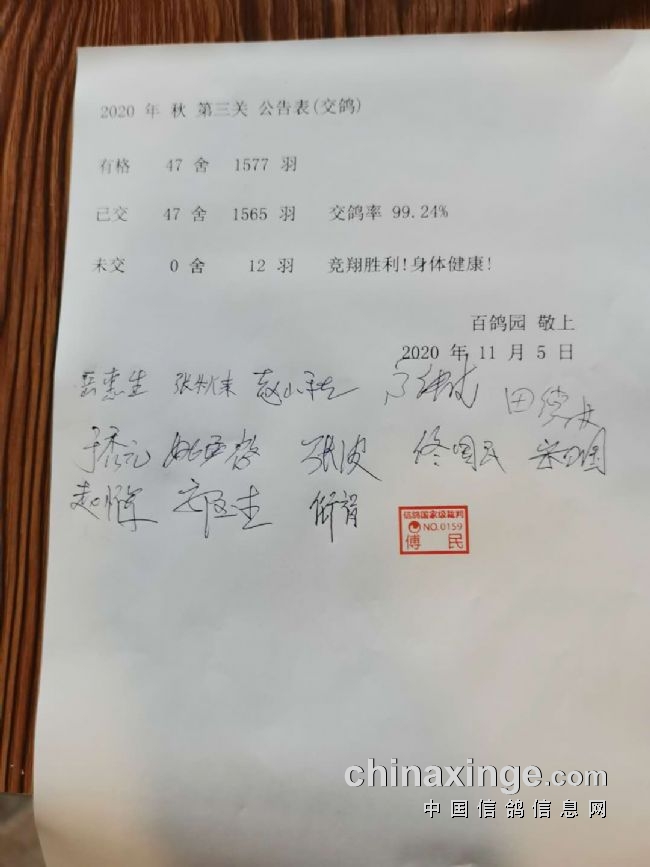 2020 年 秋 第三关 公告表(交鸽)
有格 47 舍 1577 羽
已交 47 舍 1565 羽 交鸽率 99.24%
未交 0 舍 12 羽 竞翔胜利!身体健康!
百鸽园 敬上
2020 年 11 月 5 日
张秋来
于秀元 张波 佟国民
信鸽国家级裁判
NO.0159
傅 民
chinaxinge.com
中国信鸽信息网